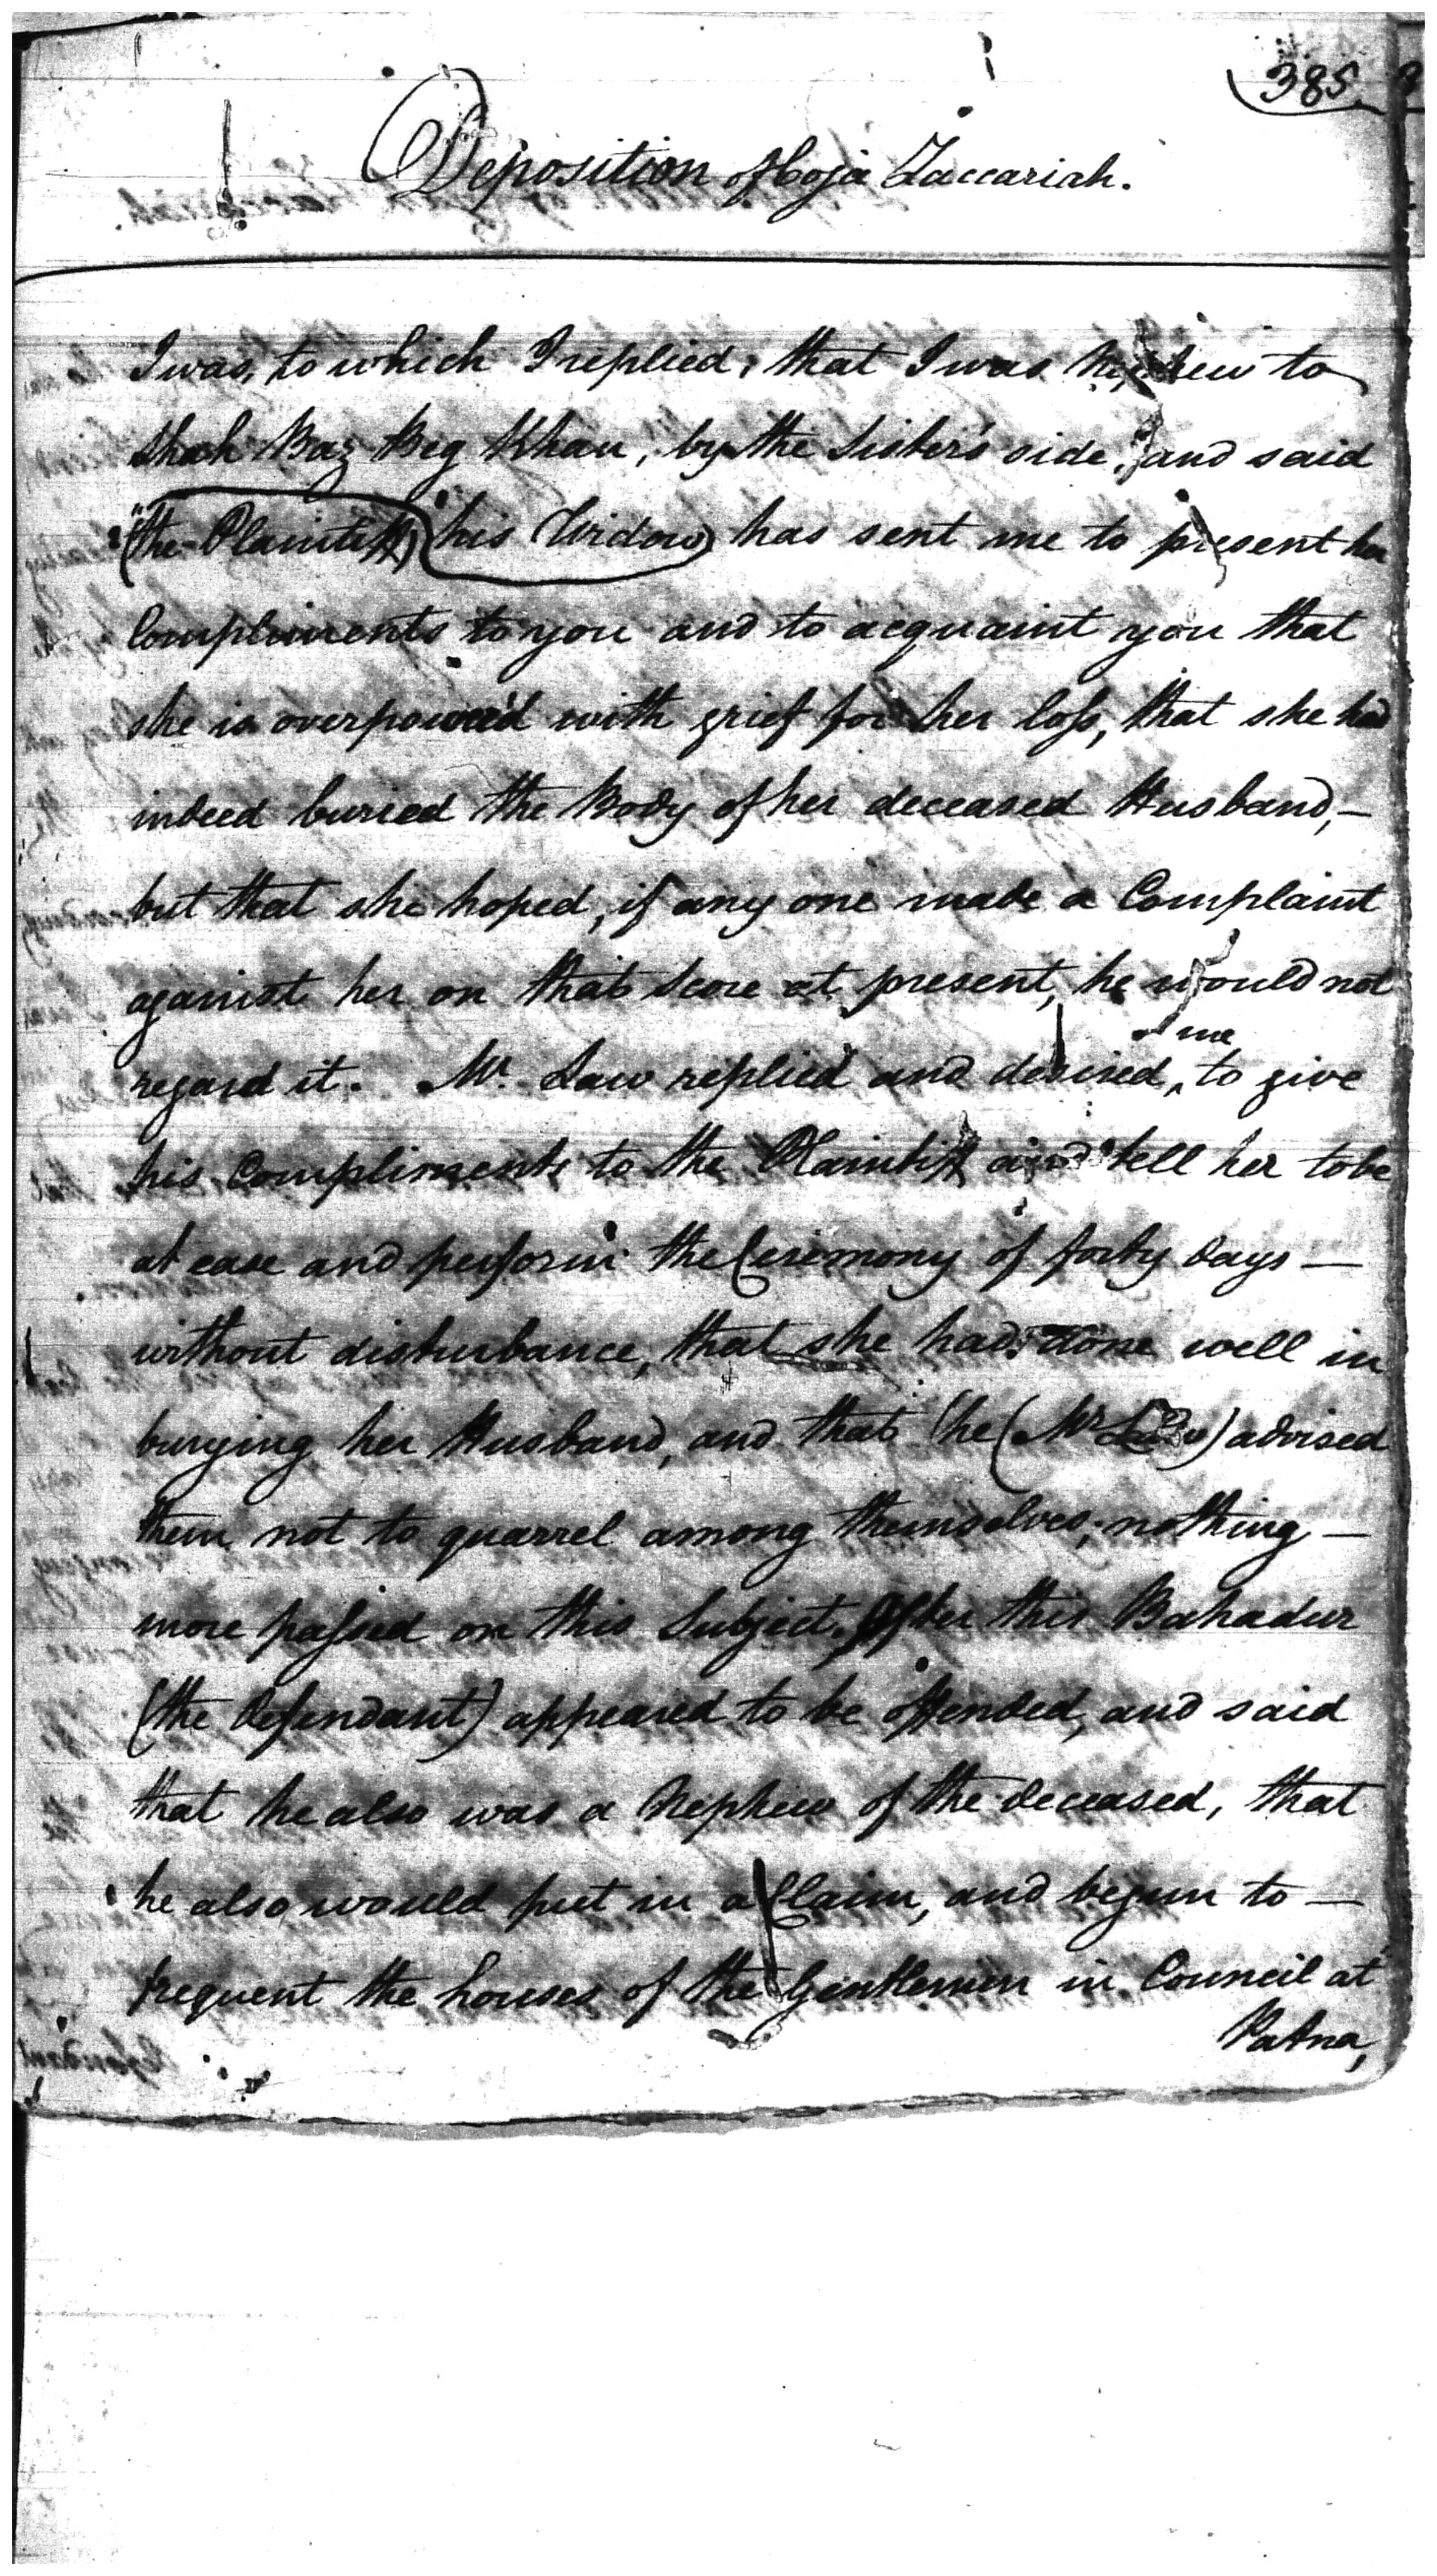 385
Deposition of Coja Zaccariah.
I was, to which I replied, that I was Nephew to
Shah Baz Beg Khan, by the Sister's side, and said
"(the Plaintiff) his Widow) has sent me to present her
Compliments to you and to acquaint you that
she is overpower'd with grief for her loss, that she had
indeed buried the Body of her deceased Husband, —
but that she hoped, if any one made a Complaint
against her on that score at present, he would not
regard it. Mr. Law replied and desired, me to give
his Compliments to the Plaintiff and tell her to be
at ease and perform the Ceremony of forty days —
without disturbance, that she had done well in
burying her Husband, and that he (Mr Law) advised
them not to quarrel among themselves; nothing —
more passed on this Subject. After this Bahadur
(the Defendant) appeared to be offended, and said
that he also was a Nephew of the deceased, that
he also would put in a Claim, and begun to —
frequent the houses of the Gentlemen in Council at
Patna,